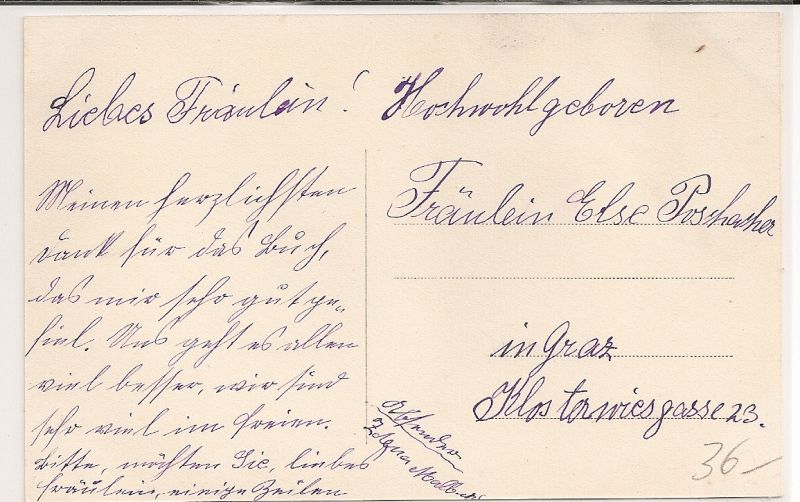 Liebes Fräulein!
Meinen herzlichsten
Dank für das Buch,
das mir sehr gut ge-
fiel. Uns geht es allen
viel besser, wir sind
sehr viel im freien.
Bitte, möchten Sie, liebes
Fräulein, einige Zeilen
Hochwohlgeboren
Fräulein Else Poschacher
in Graz
Klosterwiesgasse 23.
Absender
36-